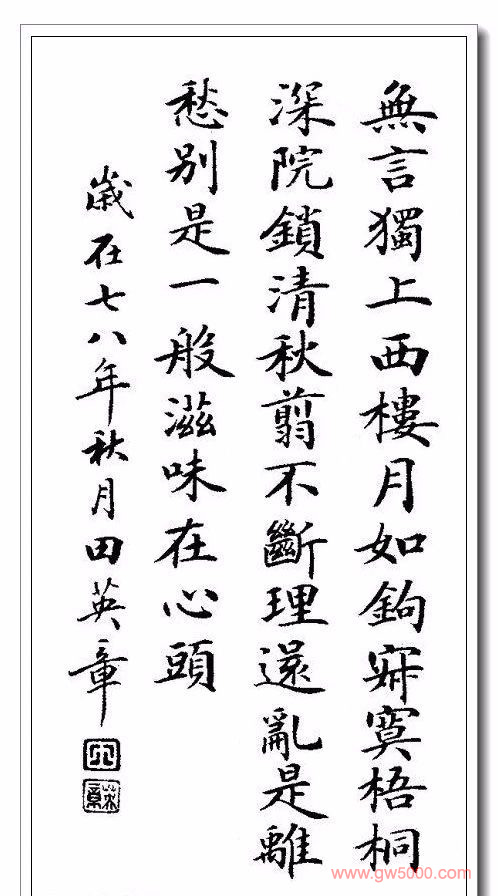 無言獨上西樓月如鉤寂寞梧桐
深院鎖清秋翦不斷理還亂是離
愁別是一般滋味在心頭
歲在七八年秋月田英章
www.gw5000.com